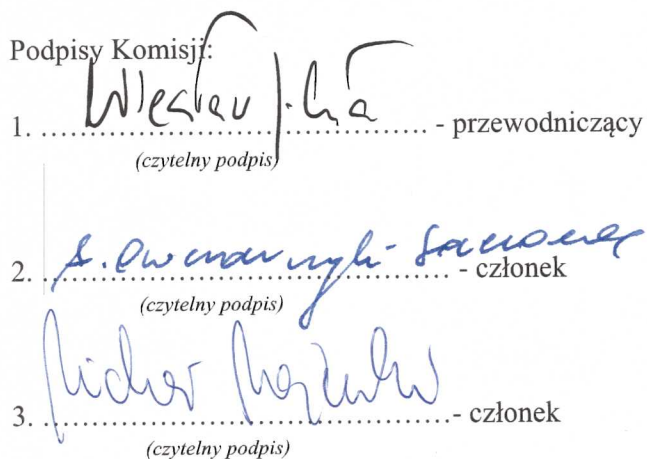 Podpisy Komisji:
1. Wiesław ........................................ - przewodniczący
(czytelny podpis)
2. ........................................ - członek
(czytelny podpis)
3. Michał ........................................ - członek
(czytelny podpis)